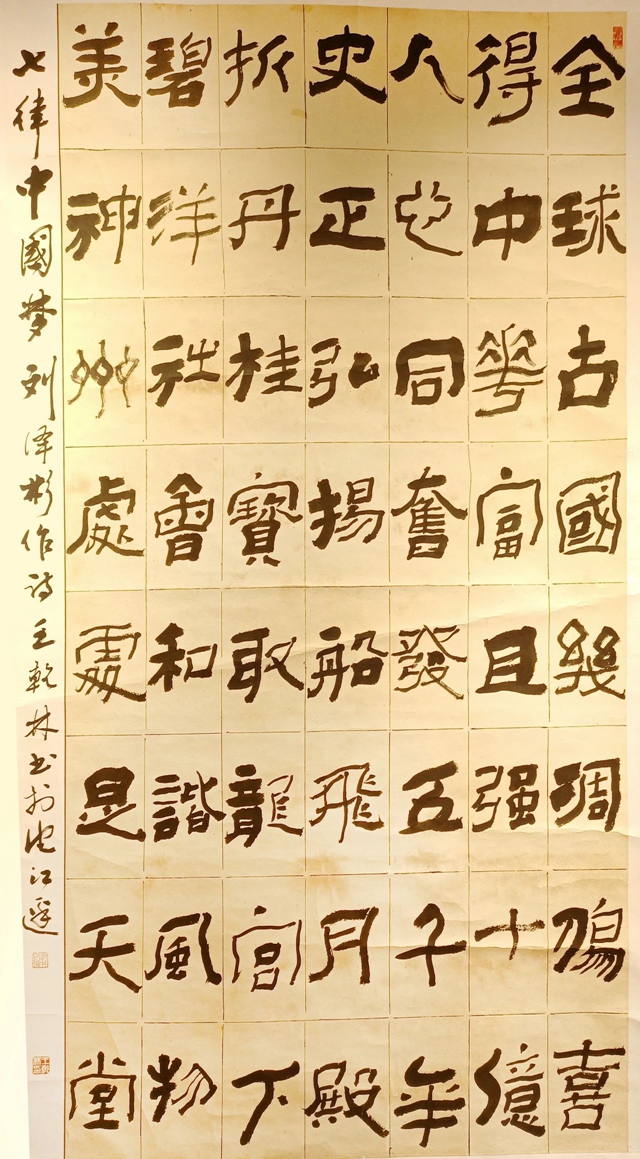 全球古國幾凋殤喜
得中華富且强十億
人心同奮發五千年
史正弘揚船飛月殿
折丹桂寶取龍宮下
碧洋社會和諧風物
美神州處處是天堂
七律中國梦刘泽彬作诗王乾林书於沱江邊